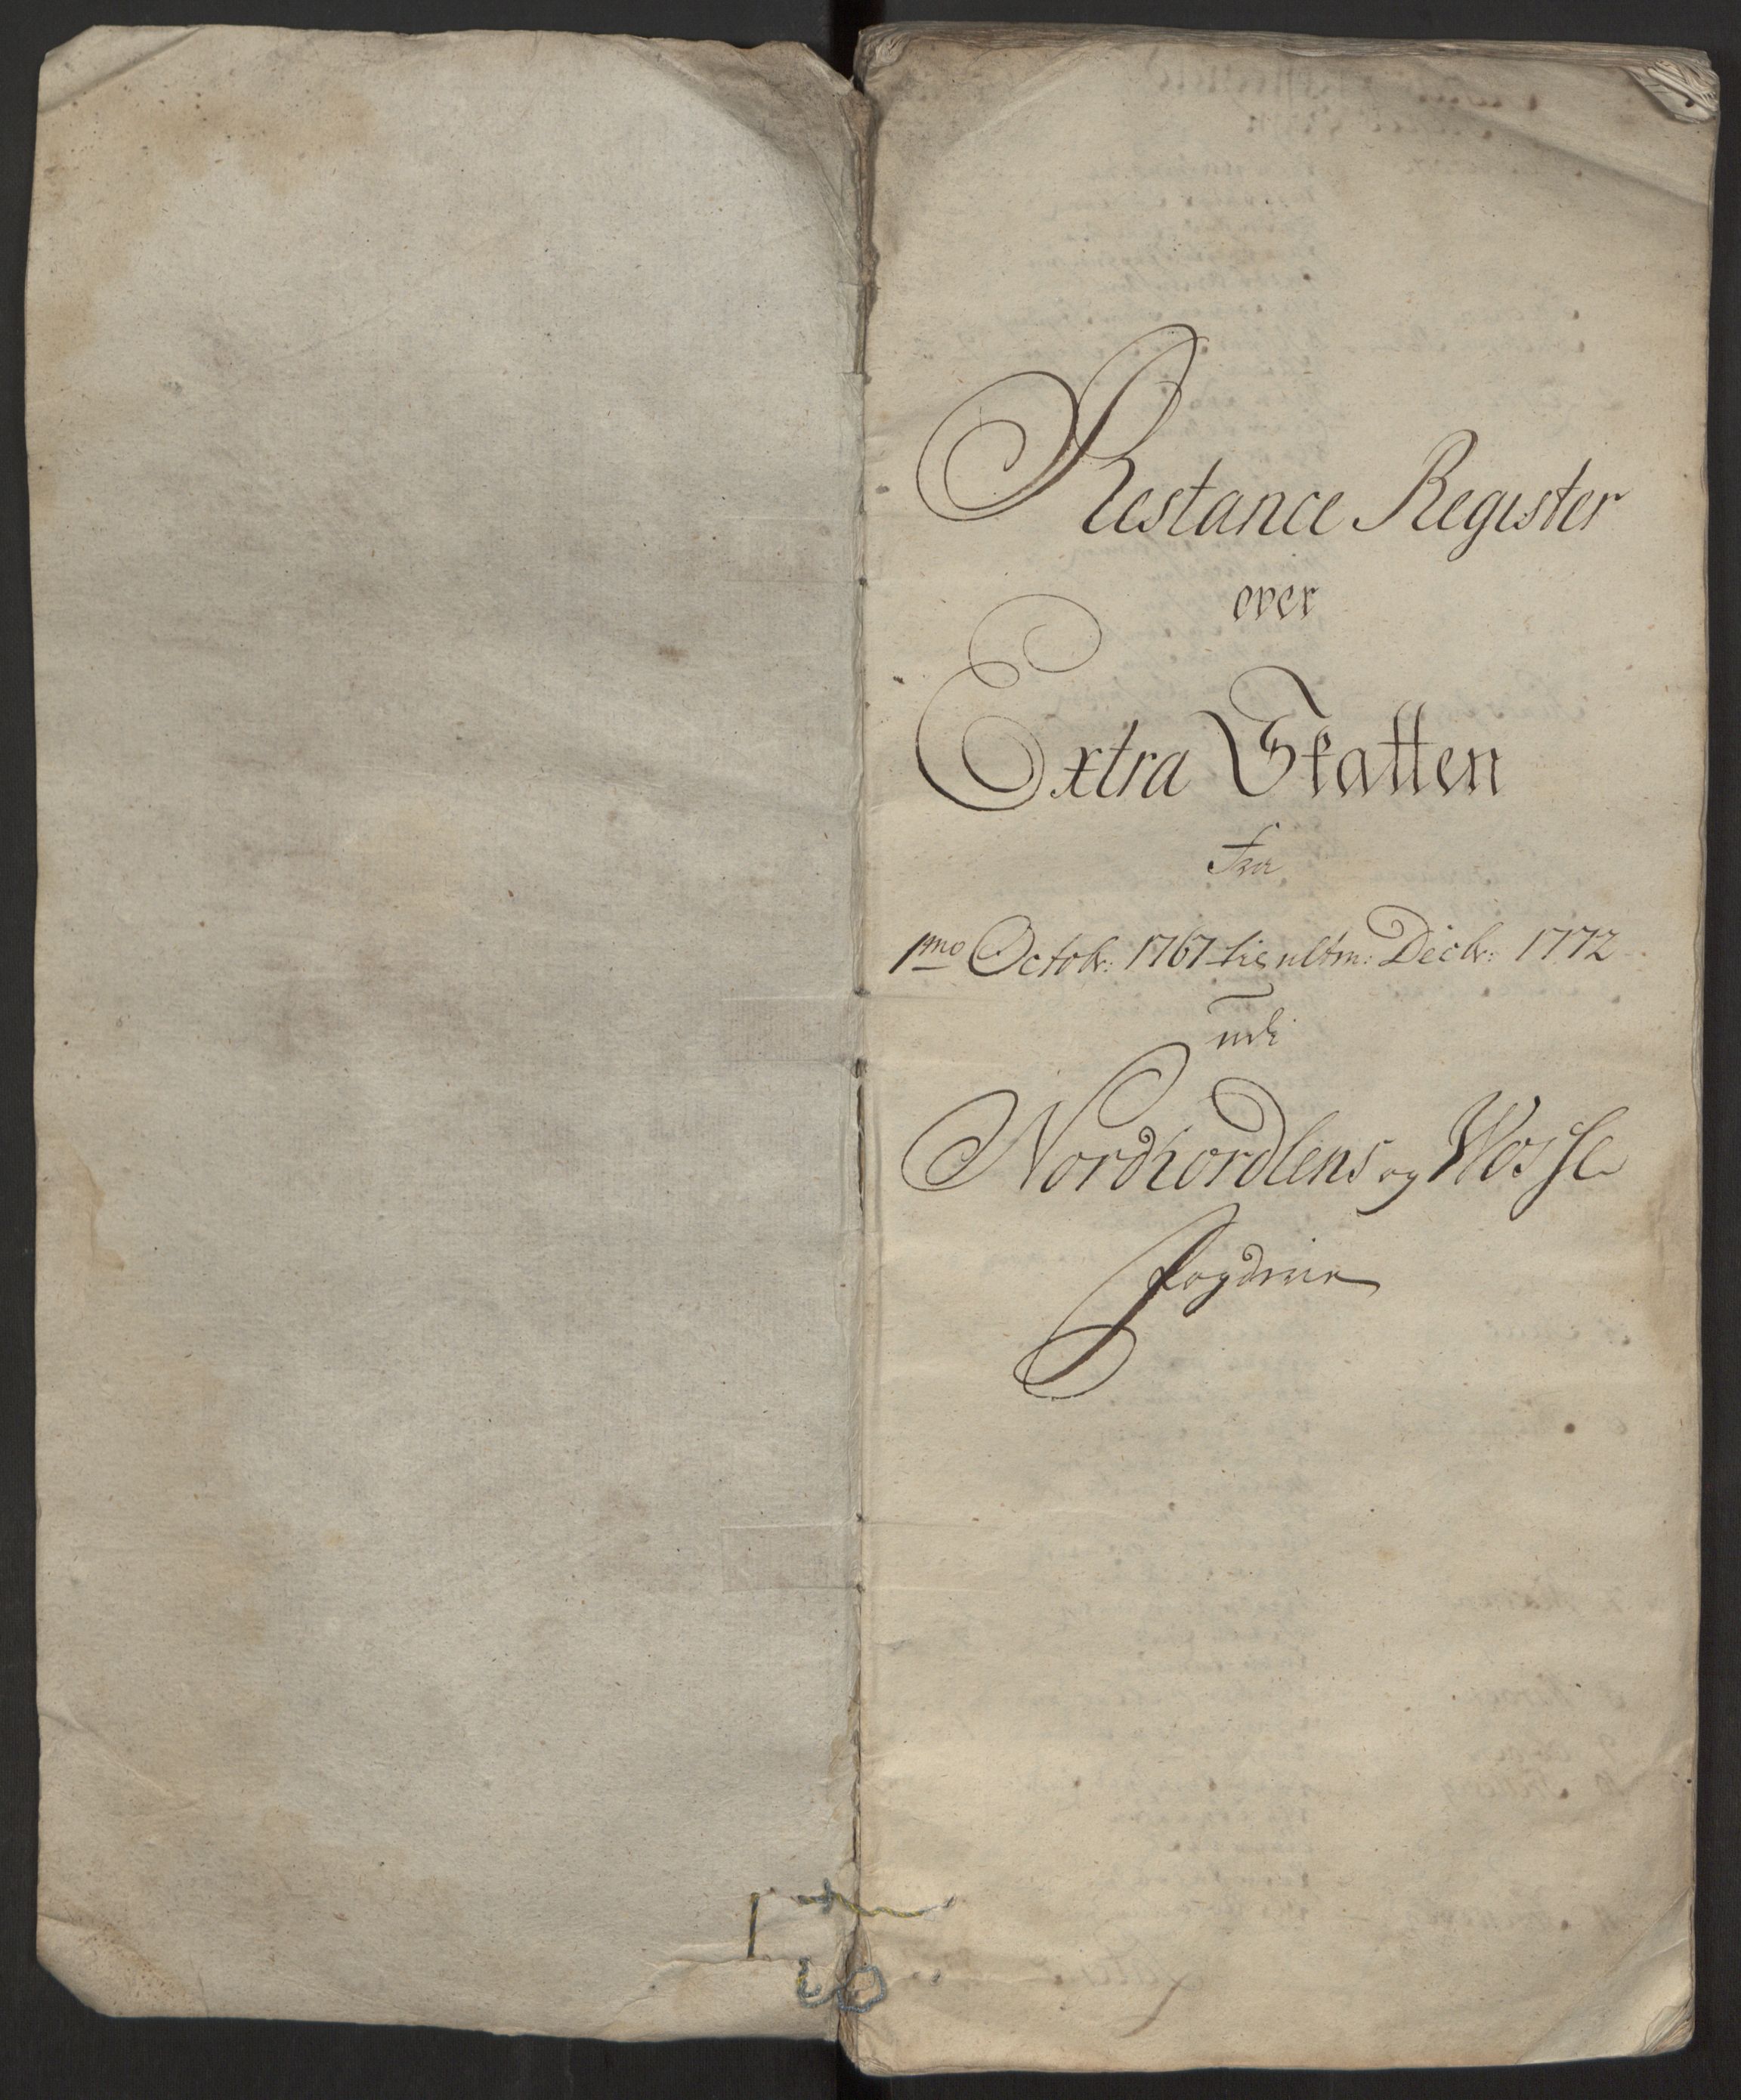 Restance Register
over
Extra Skatten
fra
1mo Octobr: 1767 til ultm: Decbr: 1772
udi
Nordhordlens og Wosse
fogderie